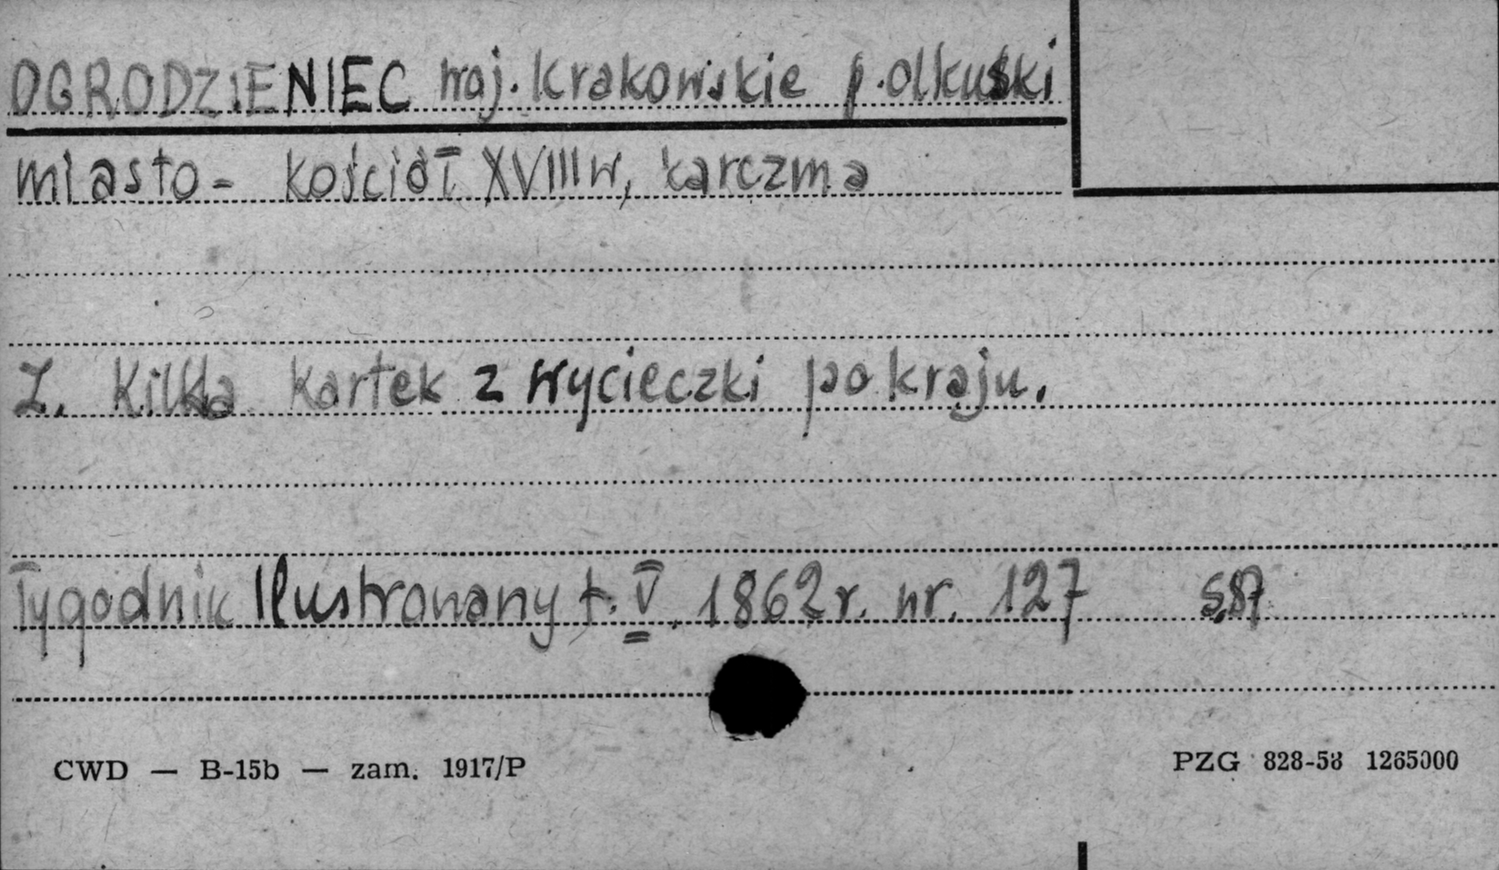 OGRODZIENIEC woj. krakowskie p. olkuski
miasto - kościół XVIII w, karczma
Z. Kilka kartek z wycieczki po kraju.
Tygodnik Ilustrowany t. V. 1862 r. nr. 127 s.87
CWD — B-15b — zam. 1917/P
PZG 828-58 1265000